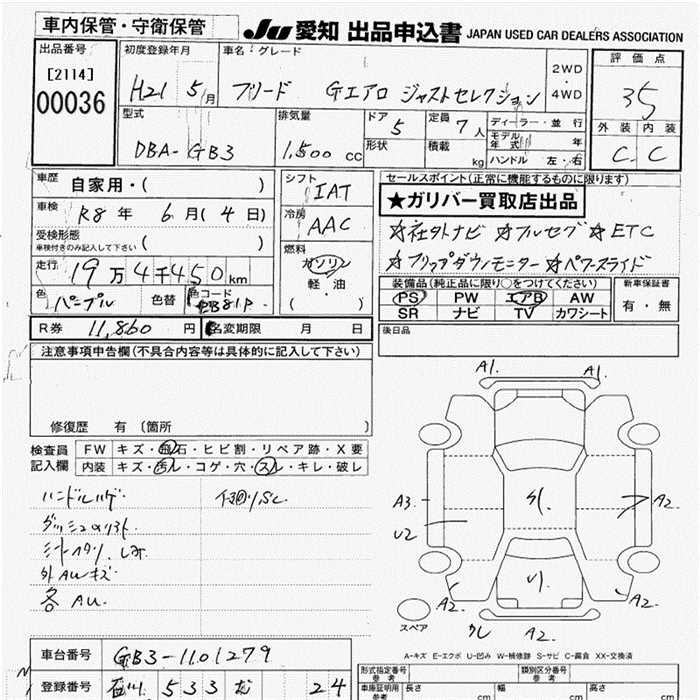 車内保管・守衛保管
JU 愛知 出品申込書 JAPAN USED CAR DEALERS ASSOCIATION
出品番号 初度登録年月 車名・グレード 評価点
[2114]
00036
H21 5月 フリード Gエアロ ジャストセレクション 2WD・4WD 35
型式 排気量 ドア 定員 ディーラー・並行 外装 内装
DBA-GB3 1,500 cc 5 7人 モデル年式 年 C C
形状 積載 kg ハンドル 左・右
車歴 自家用・( ) シフト IAT セールスポイント(正常に機能するものに限ります)
★ガリバー買取店出品
車検 R8年 6月(4日) 冷房 AAC
☆社外ナビ ☆フルセグ ☆ETC
受検形態 車検付きのみ記入して下さい ( ) 燃料 ガソリン
☆フリップダウンモニター ☆パワースライド
走行 19万4千450km 軽油・( )
装備品(純正品に限り○をつけてください) 新車保証書
色 パープル 色替 色コード PB81P
PS PW エアB AW 有・無
SR ナビ TV カワシート
R券 11,860円 名変期限 月 日
後日品
注意事項申告欄(不具合内容等は具体的に記入して下さい)
修復歴 有 〔箇所 〕
A1. A1.
検査員記入欄 FW キズ・飛石・ヒビ割・リペア跡・X要
内装 キズ・汚レ・コゲ・穴・スレ・キレ・破レ
ハンドルハゲ
外AUキズ
各AU.
A3. U2 A2.
A2. A2.
A2.
スペア
A-キズ E-エクボ U-凹み W-補修跡 S-サビ C-腐食 XX-交換済
車台番号 GB3-1101279
登録番号 石川 533 む 24
形式指定番号 参考 類別区分番号
車庫証明用 参考 長さ cm 幅 cm 高さ cm